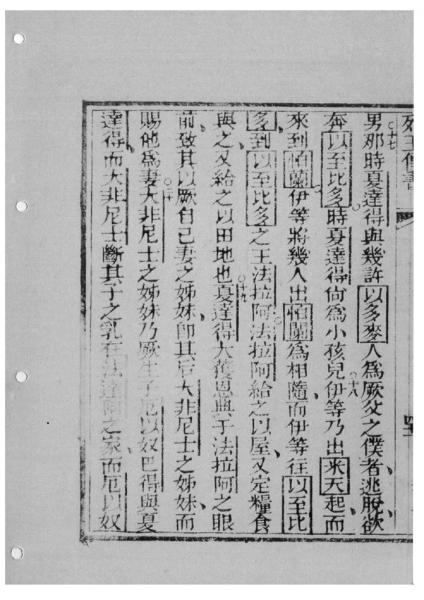 列王傳書
男那時夏達得與幾許以多麥人爲厥父之僕者逃脫欲
奔以至比多時夏達得尙爲小孩兒伊等乃出來天起而
來到怕蘭伊等將幾人出怕蘭爲相隨而伊等往以至比
多到以至比多之王法拉阿法拉阿給之以屋又定糧食
與之又給之以田地也夏達得大獲恩典于法拉阿之眼
前致其以厥自己妻之姊妹卽其后大非尼士之姊妹而
賜他爲妻大非尼士之姊妹乃厥生子厄以奴巴得與夏
達得而大非尼士斷其子之乳在法達阿之家而厄以奴